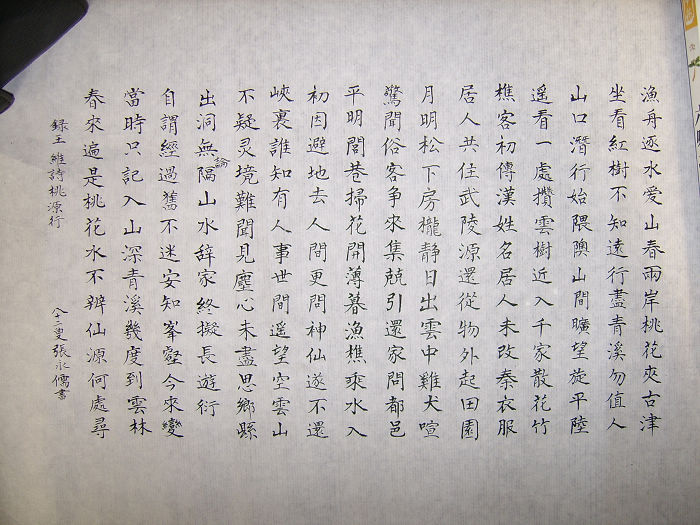 漁舟逐水愛山春兩岸桃花夾古津
坐看紅樹不知遠行盡青溪勿值人
山口潛行始隈隩山間曠望旋平陸
遥看一處攢雲樹近入千家散花竹
樵客初傳漢姓名居人未改秦衣服
居人共住武陵源還從物外起田園
月明松下房櫳静日出雲中雞犬喧
驚聞俗客争來集兢引還家問都邑
平明閭巷掃花開薄暮漁樵乘水入
初因避地去人間更問神仙遂不還
峽裏誰知有人事世間遥望空雲山
不疑灵境難聞見塵心未盡思鄉縣
出洞無論隔山水辞家終擬長遊衍
自謂經過舊不迷安知峯壑今來變
當時只記入山深青溪幾度到雲林
春來遍是桃花水不辨仙源何處尋
録王維詩桃源行
張永儒書